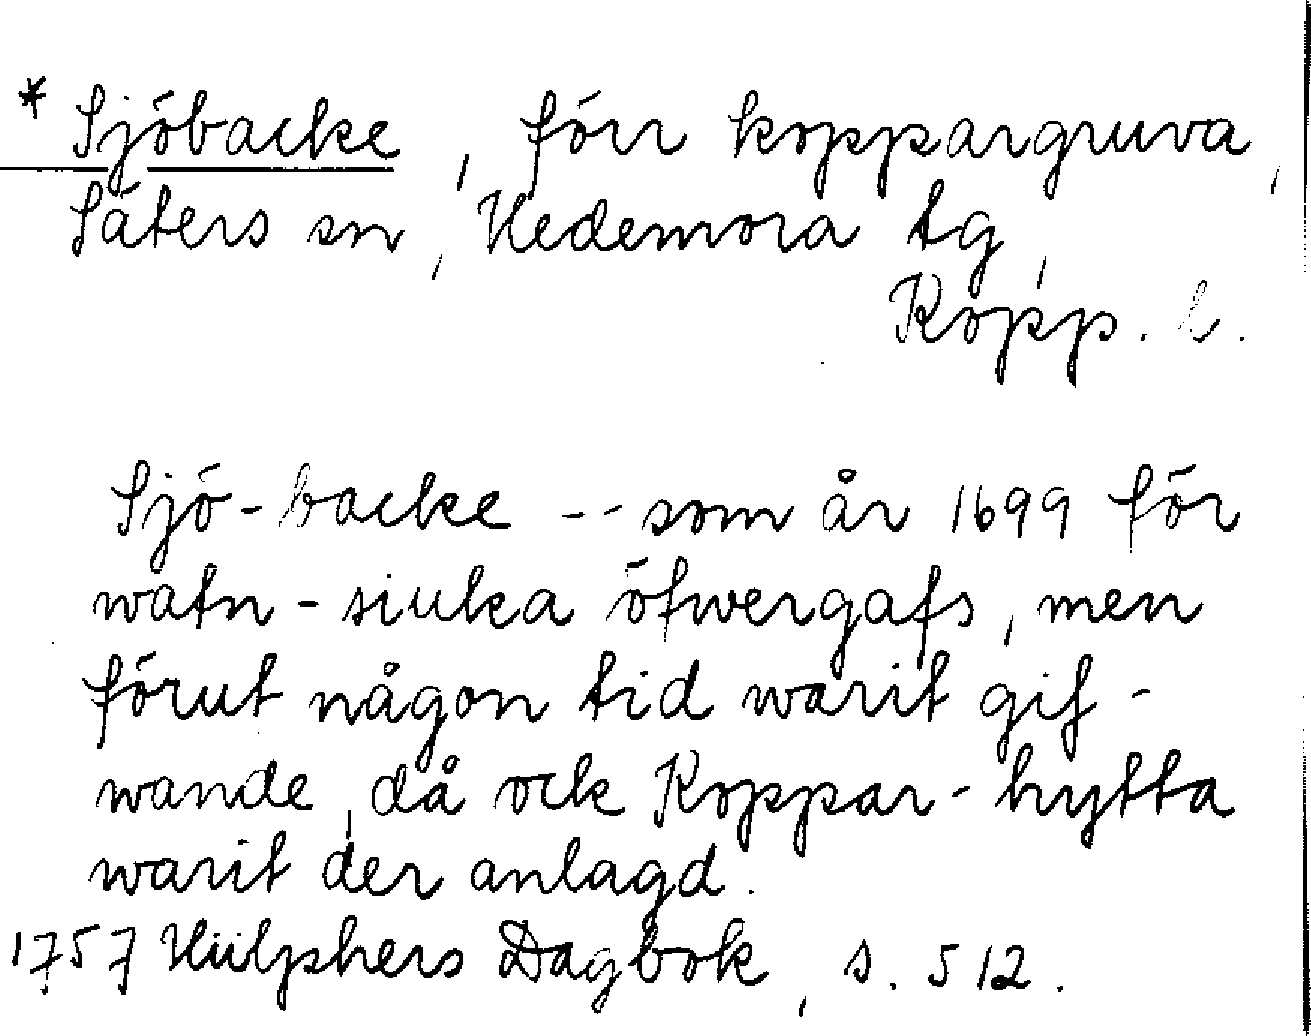 * Sjöbacke, förr koppargruva,
Säters sn, Hedemora tg,
Kopp. l.
Sjö-backe -- som år 1699 för
watn-siuka öfwergafs, men
förut någon tid warit gif-
wande, då ock Koppar-hytta
warit der anlagd.
1757 Hülphers Dagbok, s. 512.